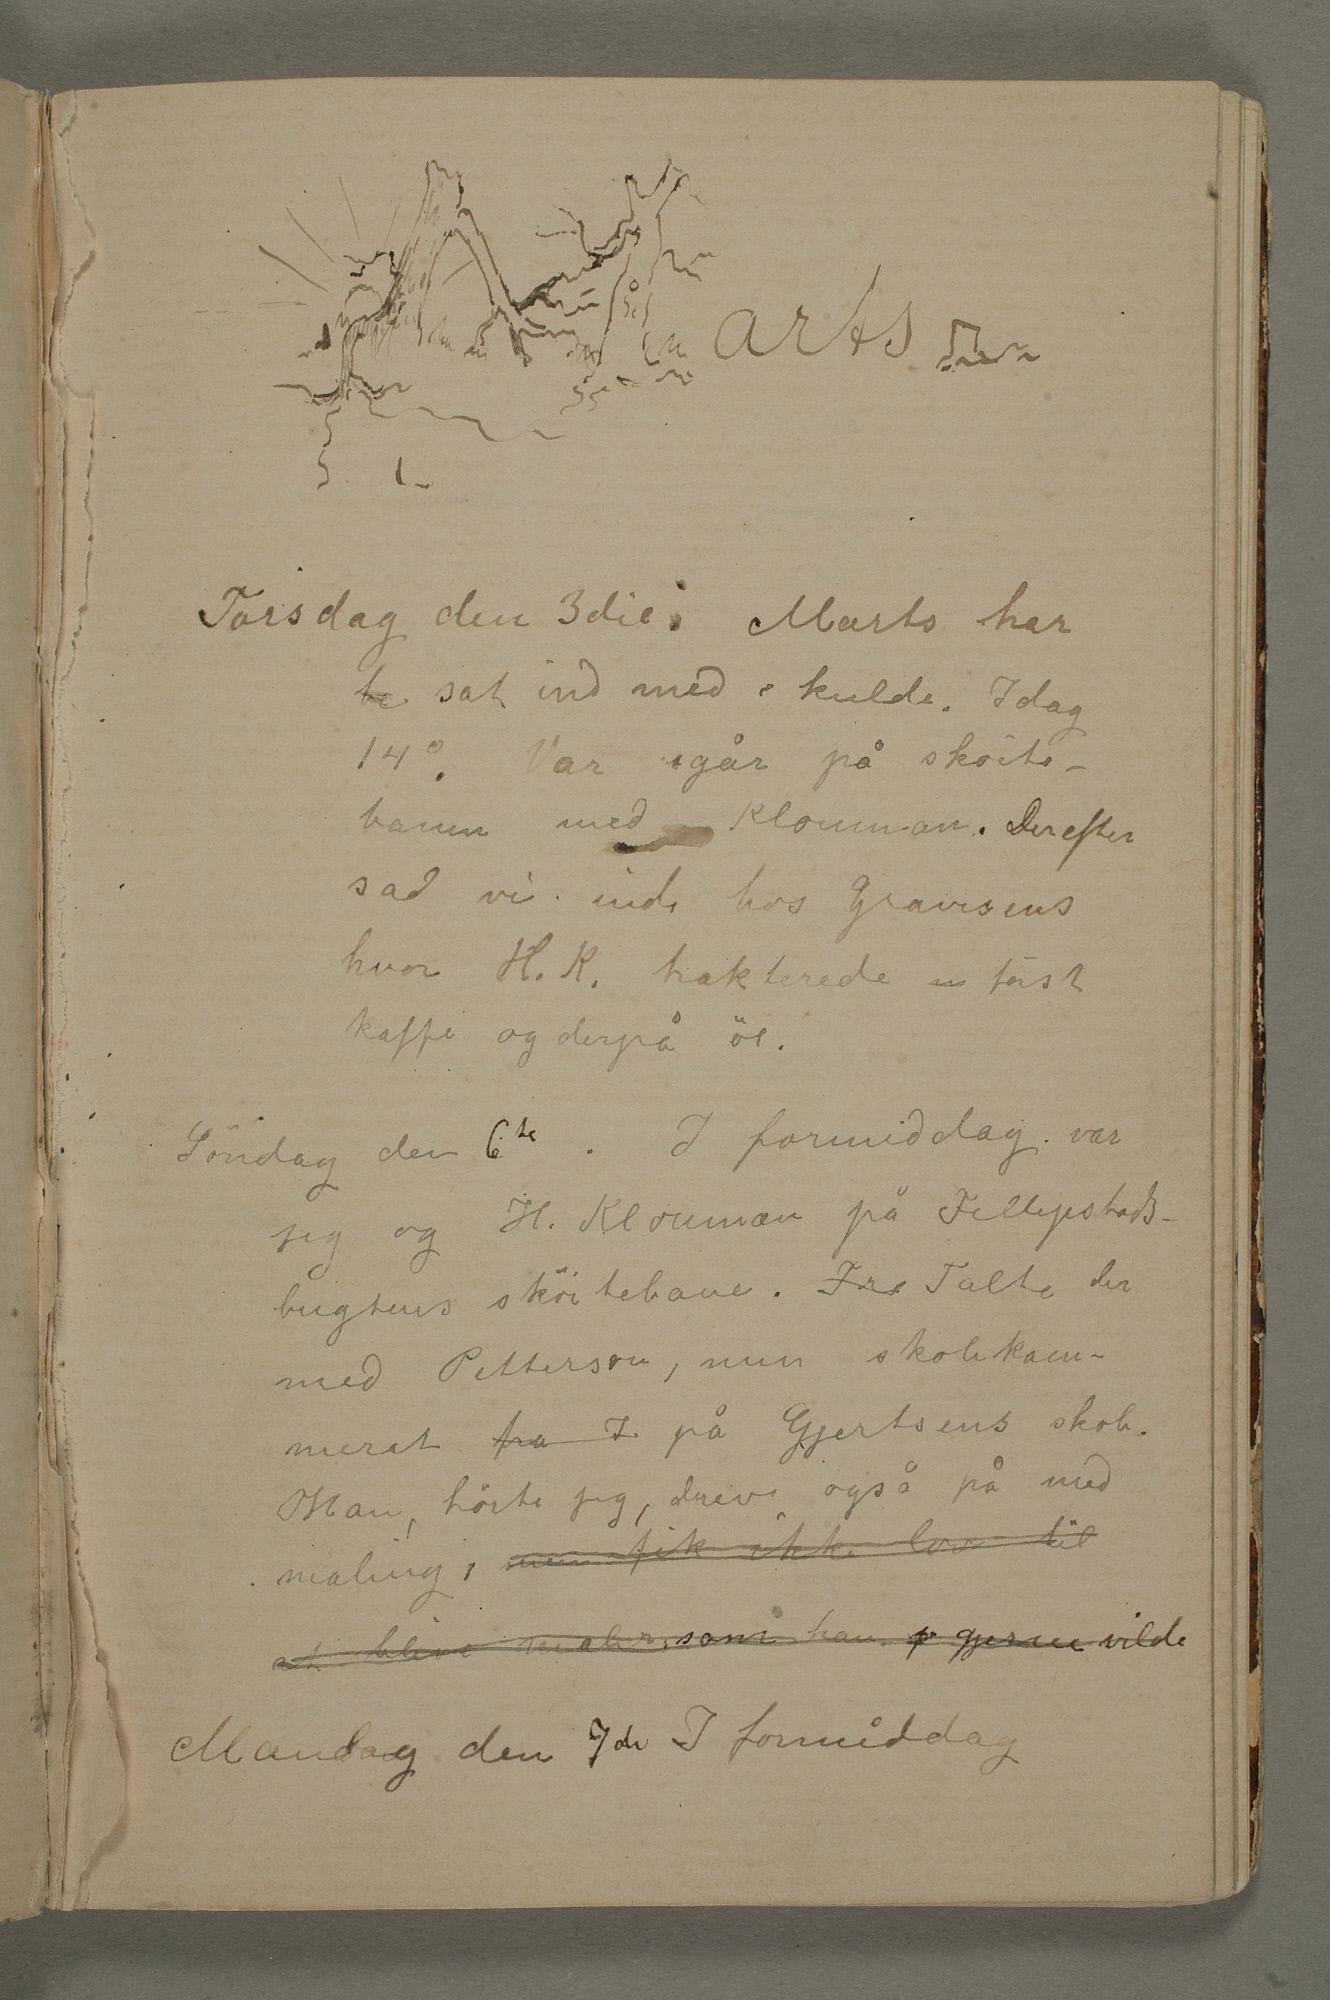 Marts
Torsdag den 3die. Marts har
te sat ind med kulde. Idag
14°. Var igår på sköite-
banen med Klouman. Derefter
sad vi inde hos Gravesens
hvor H. K. trakterede m först
kaffe og derpå öl.
Söndag den 6te. I formiddag var
jeg og H. Klouman på Fillipstads-
bugtens sköitebane. Fra Talte der
med Petterson, min skolekam-
merat fra I på Gjertsens skole.
Han, hörte jeg, dreve også på med
maling, men fik ikke lov til
at blive maler, som han gjerne vilde
Mandag den 7de I formiddag